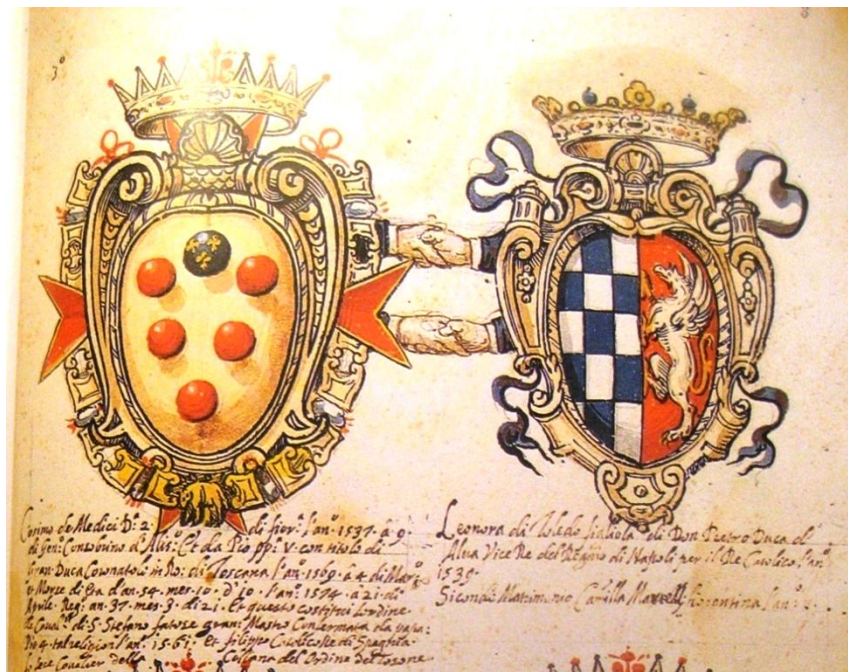 3º
Cosimo de Medici D: 2 di fior: l'an: 1537. a 9.
di gen: Et da Pio pp: V. con titolo di
Gran Duca Coronato in Ro: di Toscana l'an: 1569. a 4 di Mar:
Morse di Età d'an. 54. mes. 10. d. 10. l'an: 1574. a 21. di
Aprile. Reg: an. 37. mes. 3. di 21. Et questo costituì l'ordine
de Caual: di S. Stefano gran: Mastro Confermata da papa
Pio 4. l'an: 1561. Et filippo Catolico Re di Spagna
lo fece Caualier della Collana del Ordine del Tosone
Leonora di Toledo figliola di Don Pietro Duca di
Alua Vice Re del Regno di Napoli per il Re Catolico l'an:
1539.
Secondo Matrimonio Camilla Martelli fiorentina l'an: